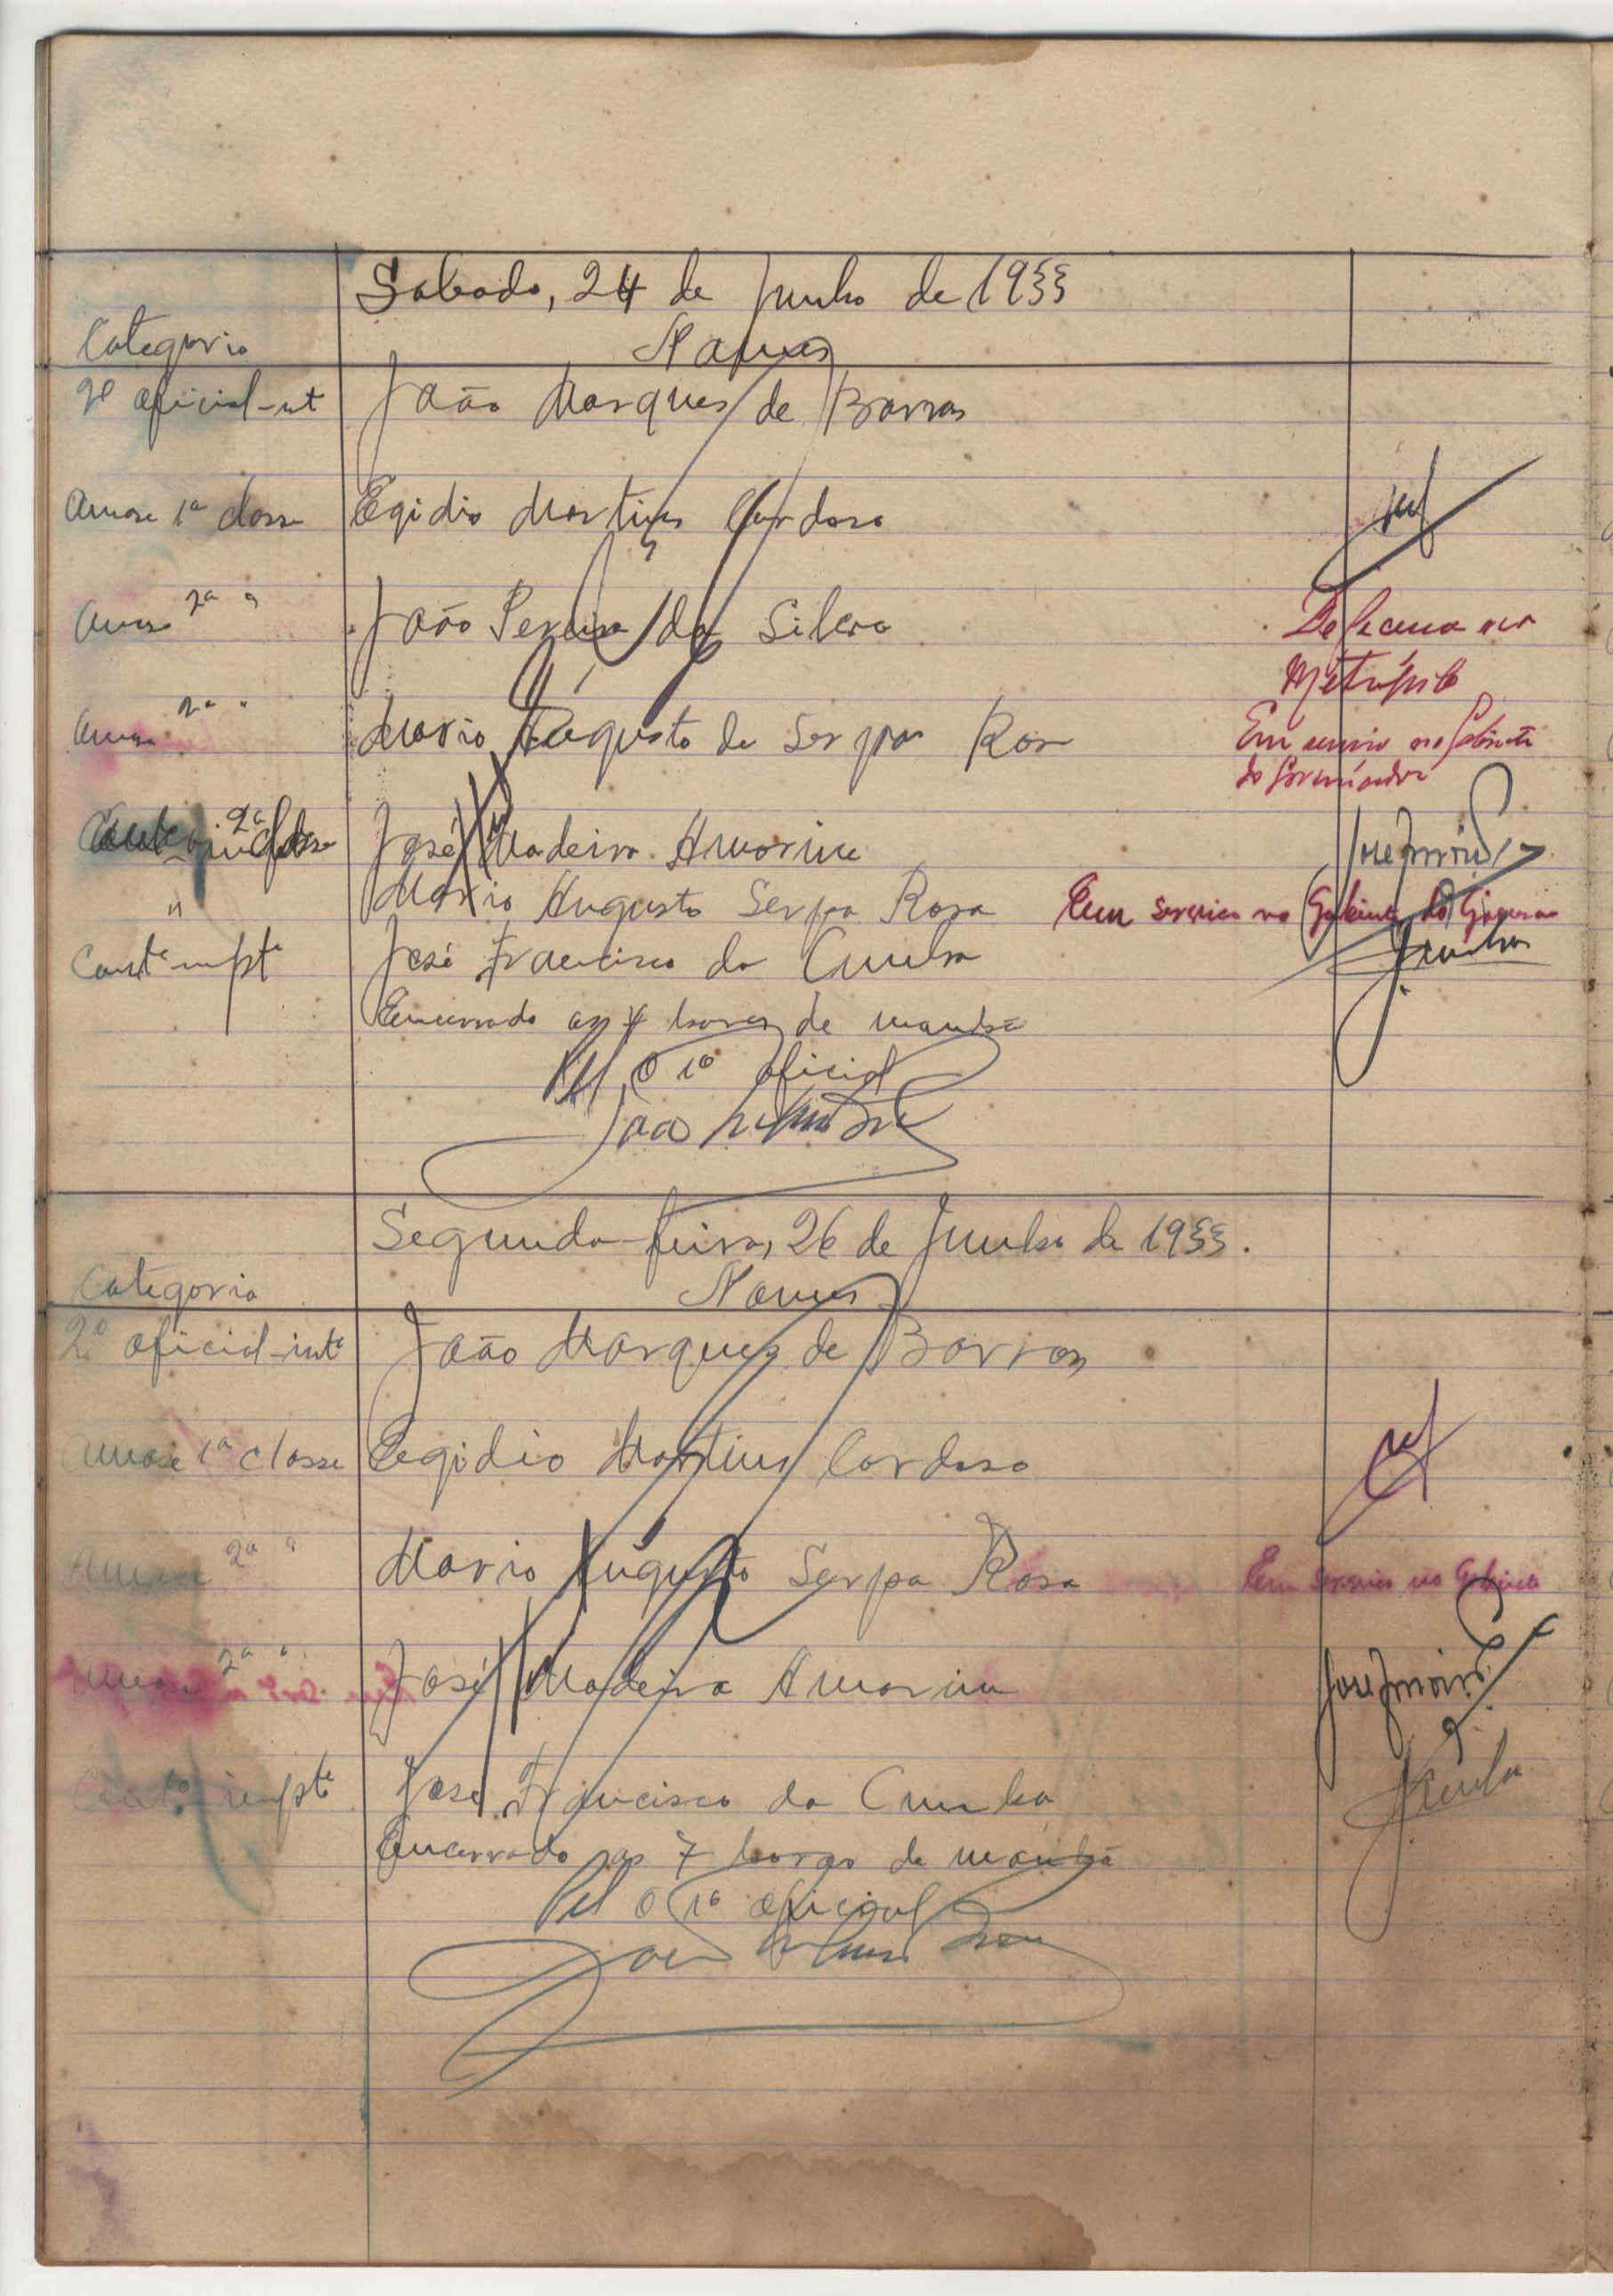 Sabado, 24 de Junho de 1933
Categoria Nomes
2º oficial-int João Marques de Barros
Amase 1ª classe Egidio Martins Cardoso
2ª " João Pereira da Silva De licença na
Metrópole
2ª " Mario Augusto de Serpa Rosa Em serviço no Gabinete
do Governador
2ª classe José Madeira Amorim
" Mario Augusto Serpa Rosa Em serviço no Gabinete do Governo
José Francisco da Cunha JCunha
Encerrado as 7 horas de manhã
Pel O 1º oficial
João
Segunda-feira, 26 de Junho de 1933.
Categoria Nomes
2º oficial-intº João Marques de Barros
Amase 1ª classe Egidio Martins Cardoso
2ª " Mario Augusto Serpa Rosa Em serviço no Gabinete
2ª " José Madeira Amorim
José Francisco da Cunha JCunha
Encerrado as 7 horas de manhã
Pel O 1º oficial
João